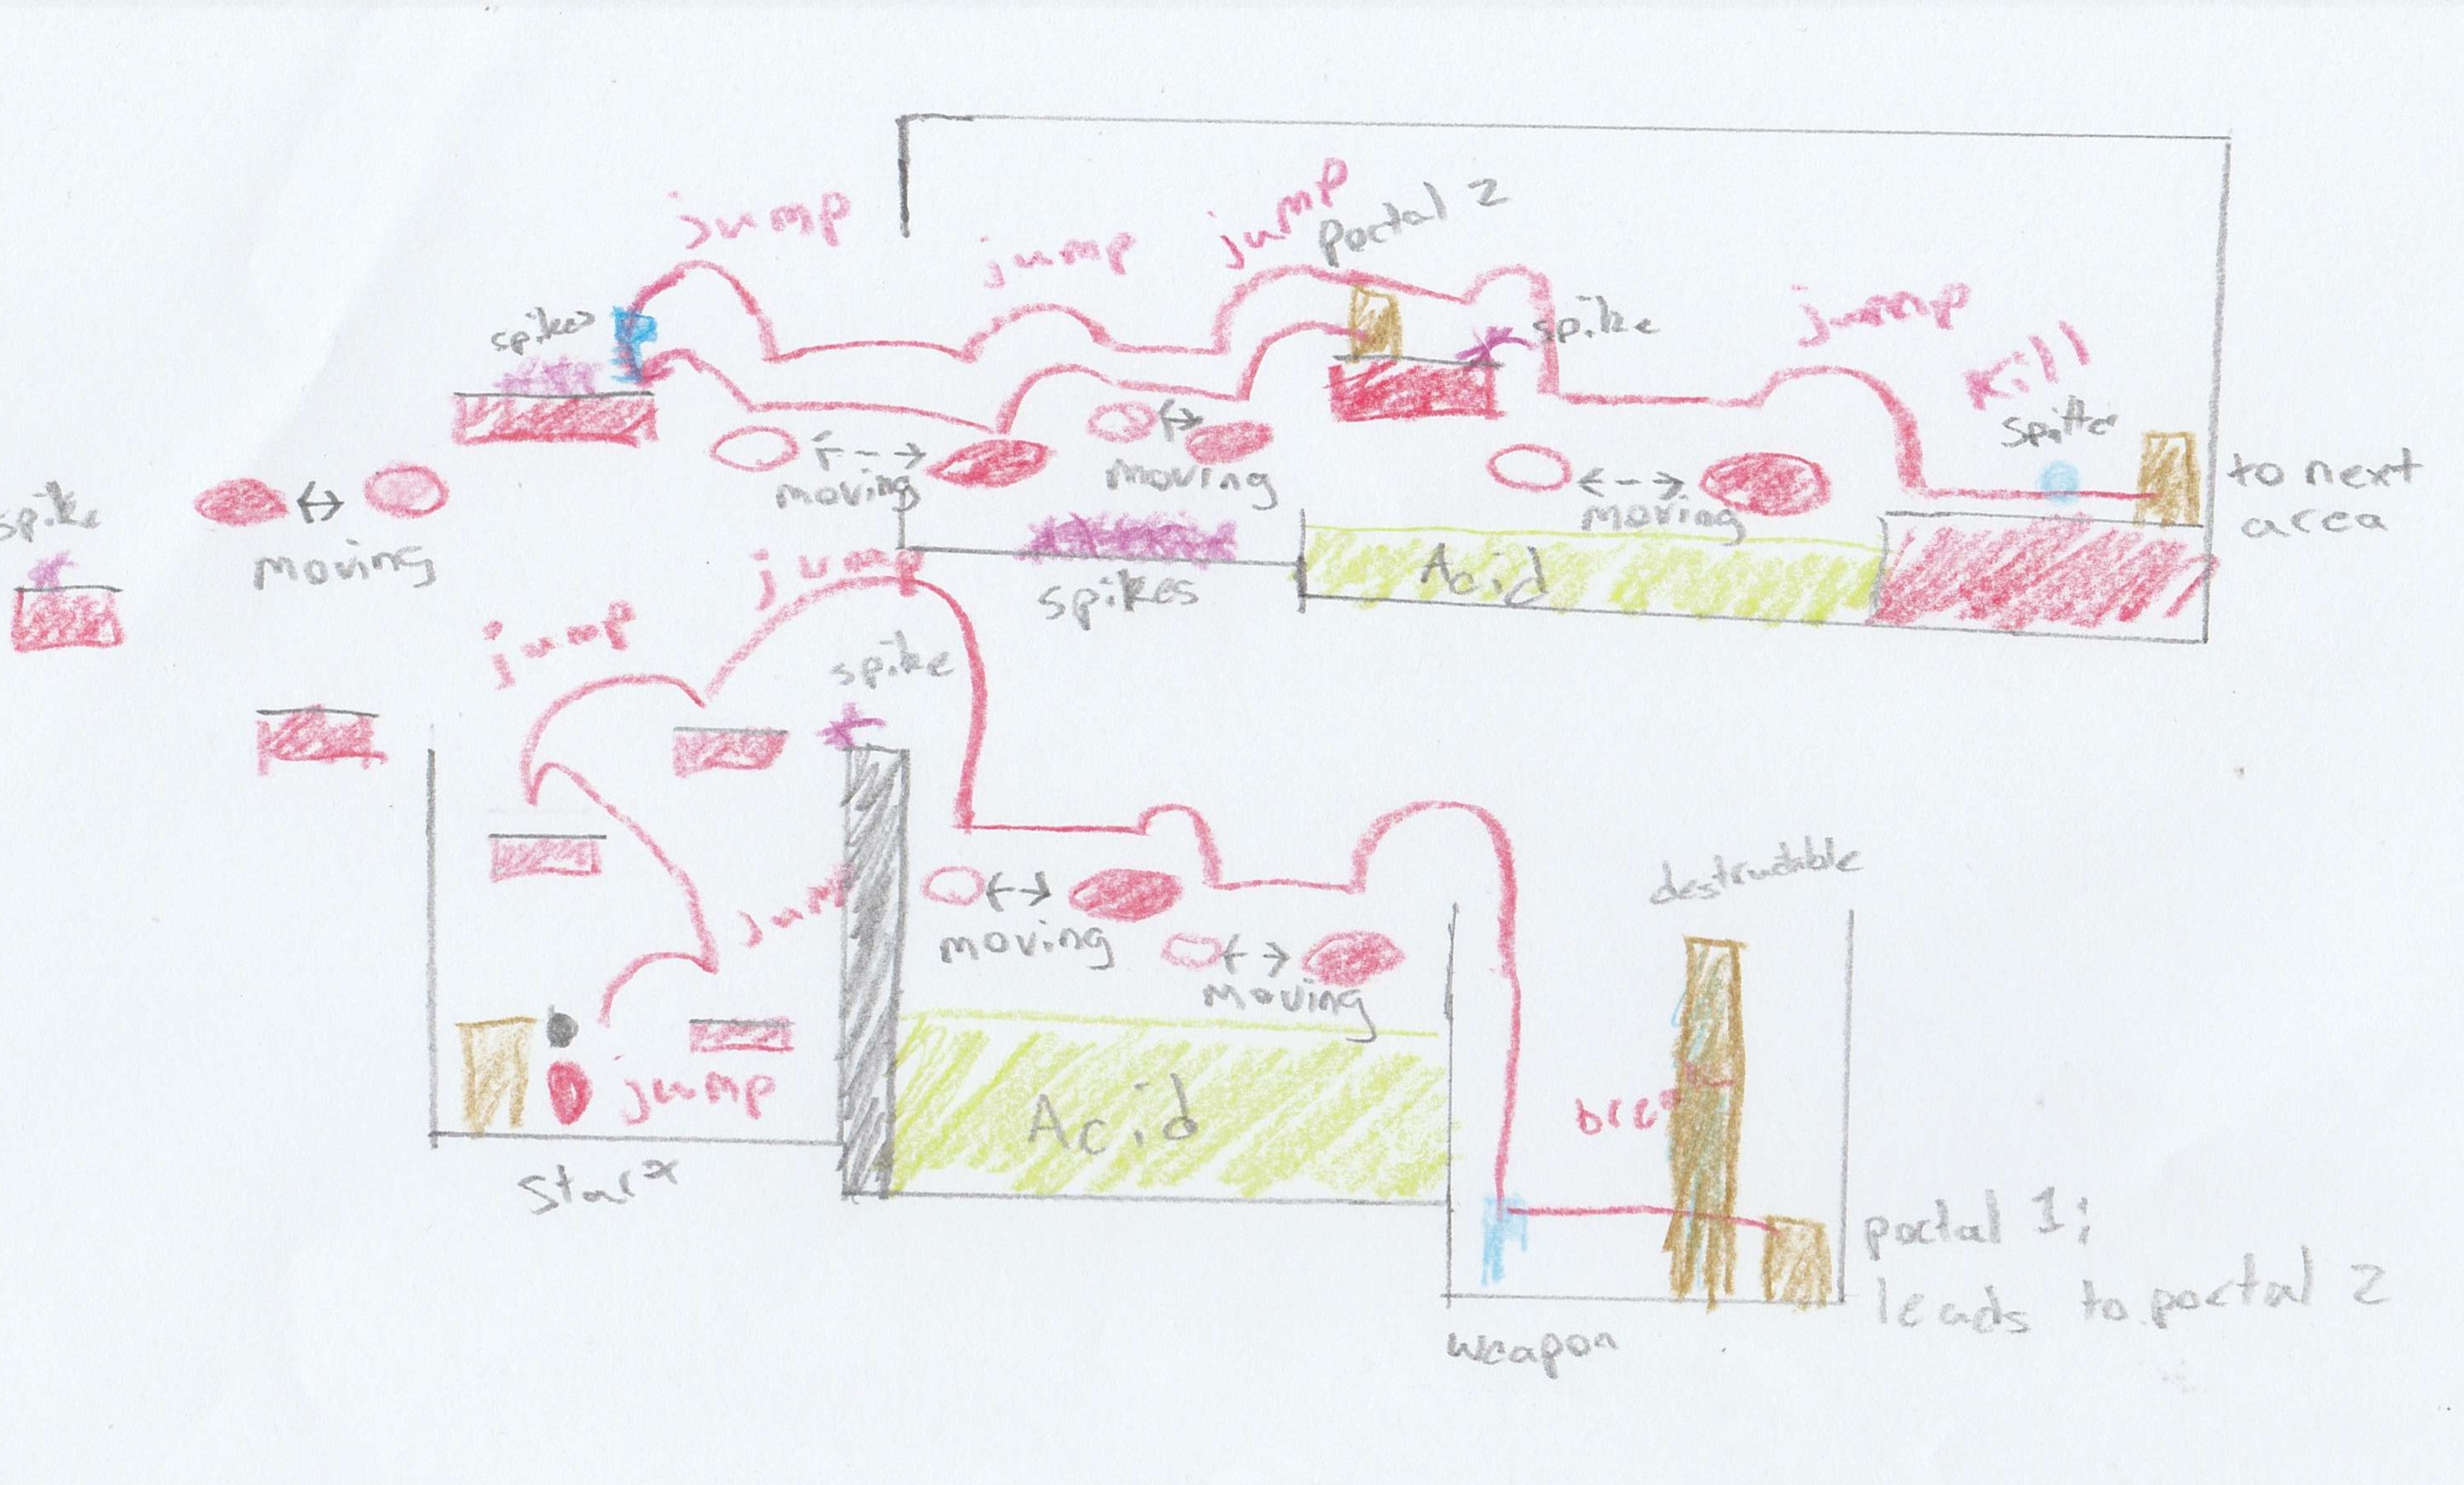 jump
jump
jump
portal 2
spikes
spike
jump
Kill
spitter
moving
moving
moving
to next
area
spike
moving
jump
spikes
Acid
jump
spike
jump
moving
moving
destructible
jump
Acid
Start
portal 1;
leads to portal 2
weapon